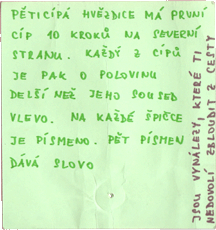 PĚTICÍPÁ HVĚZDICE MÁ PRVNÍ
CÍP 10 KROKŮ NA SEVERNÍ
STRANU. KAŽDÝ Z CÍPŮ
JE PAK O POLOVINU
DELŠÍ NEŽ JEHO SOUSED
VLEVO. NA KAŽDÉ ŠPIČCE
JE PÍSMENO. PĚT PÍSMEN
DÁVÁ SLOVO
JSOU VYNÁLEZY, KTERÉ TI
NEDOVOLÍ ZBLOUDIT Z CESTY